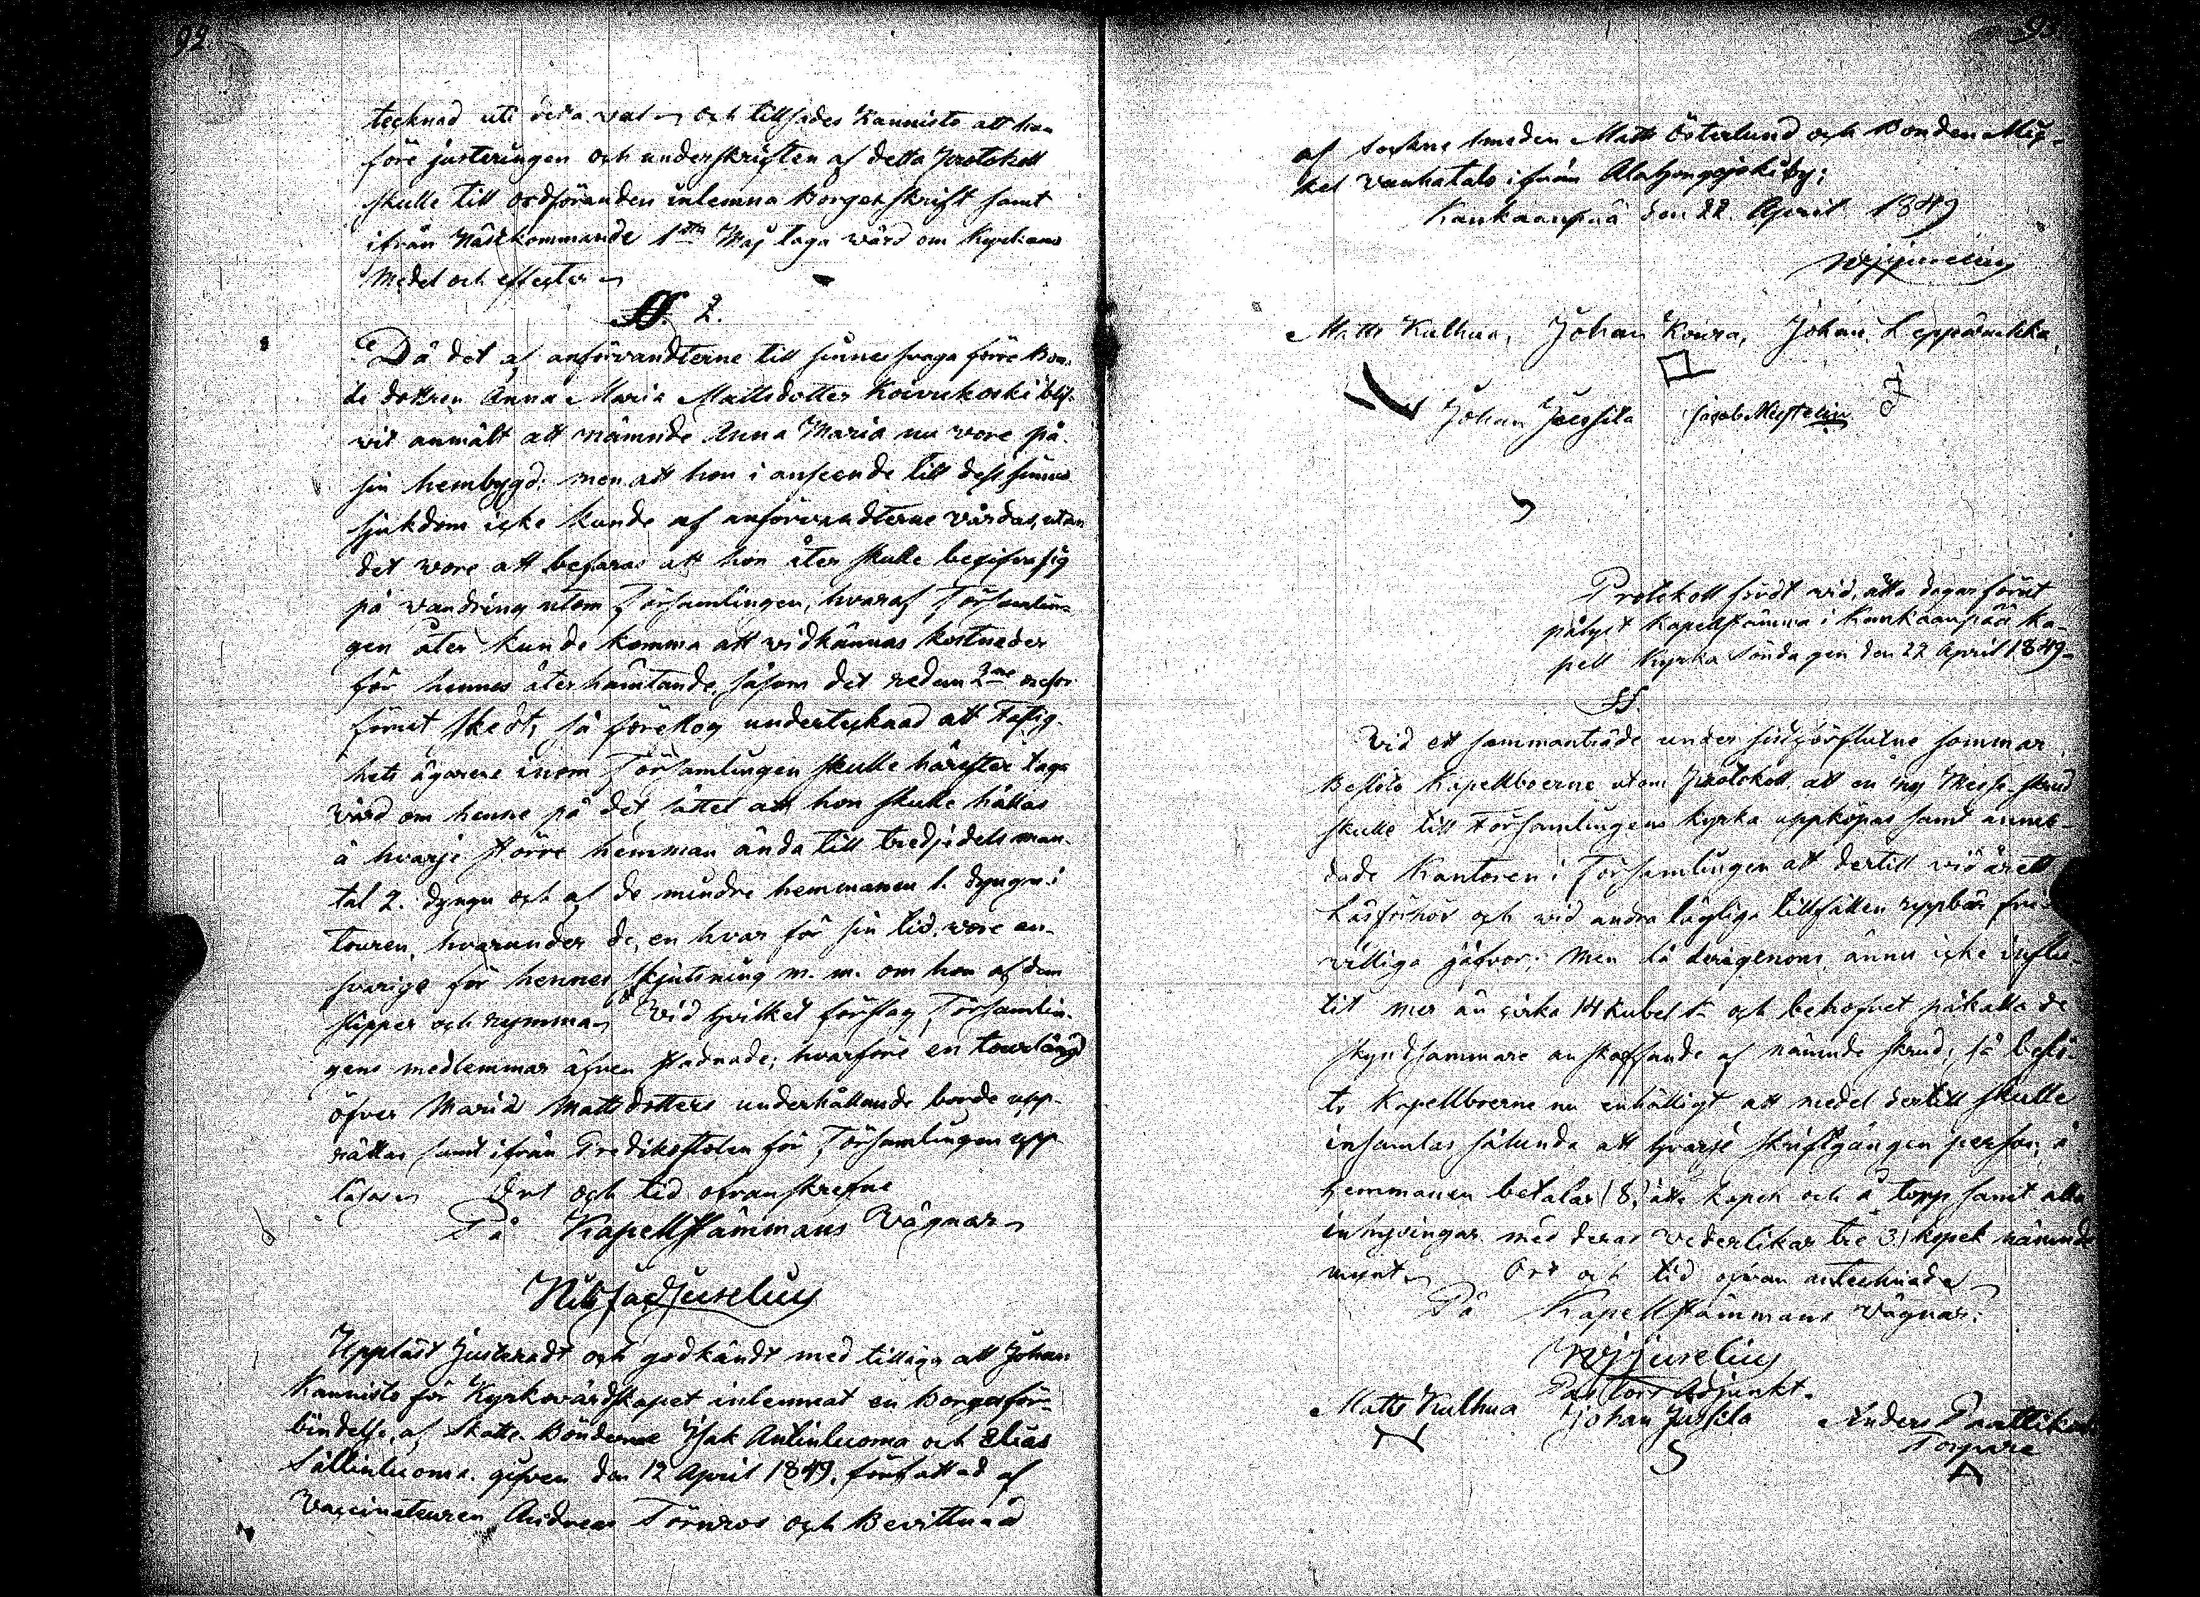 92.
tecknad uti detta val och tillsades Kannisto att han
före justeringen och underskriften af detta Protokoll
skulle till Ordföranden inlemna Borgesskrift samt
ifrån nästkommande 1sta Maj taga wård om Kyrkans
medel och effecter
§. 2.
Då det af anförvandterne till sinnessvaga förre Bon-
de dottren Anna Maria Mattsdotter Koivukoski blif-
vit anmält att nämnde Anna Maria nu vore på
sin hembygd: men att hon i anseende till dess sinnes
sjukdom icke kunde af anförvandterne vårdas, utan
det vore att befaras att hon åter skulle begifva sig
på vandring utom Församlingen, hvaraf Församlin-
gen åter kunde komma att vidkännas kostnader
för hennes återhämtande, såsom det redan 2ne resor
förut skedt, så föreslog undertecknad att Fastig-
hets ägarene inom Församlingen skulle härefter taga
vård om henne på det sättet att hon skulle hållas
å hvarje större hemman ända till tredjedels man-
tal 2. dygn och af de mindre hemmanen 1. dygn i
touren, hvarunder de, en hvar för sin tid, vore an-
svarige för hennes skjutsning m. m. om hon af dem
slipper och rymma Vid hvilket förslag Församlin-
gens medlemmar äfven stadnade; hvarföre en tourlängd
öfver Maria Mattsdotters underhållande borde upp-
rättas samt ifrån Predikostolen för Församlingen upp
läsas Ort och tid ofvanskrefne
På Kapellstämmans Vägnar
Nils Jac Jurelius
Uppläst justeradt och godkändt med tillägg att Johan
Kannisto för Kyrkvärdskapet inlemnat en Borgesför-
bindelse, af Skatte Bönderne Isak Antinluoma och Elias
Sällinluoma gifven den 12 April 1849, författad af
Vaccinateuren Andreas Törnroos och Bevittnad
93.
af Sockne smeden Matts Österlund och Bonden Mic-
kel Vanhatalo ifrån Alahongojoki by;
Kankaanpää den 22. April 1849
NJJurelius
Matts Kulhua, Johan Koura, Johan Leppänekka,
Johan Jussila Jacob Mustelin
Protokoll fördt wid, åtta dagar förut
pålyst Kapellstämma i Kankaanpää Ka-
pell Kyrka Söndagen den 22 April 1849
§
Vid ett sammanträde under sistförflutne sommar
Beslöto Kapellboerne utom Protokoll, att en ny Mess-skrud
skulle till Församlingens kyrka uppköpas samt anmo-
dade Kantoren i Församlingen att dertill vid årets
Läsförhör och wid andra lägliga tillfällen uppbära fri-
villiga gåfvor; Men då derigenom ännu icke influ-
tit mer än cirka 14 Rubel Sr och behofvet påkallade
skyndsammare anskaffande af nämnde skrud; så beslö-
to Kapellboerne nu enhälligt att medel dertill skulle
insamlas sålunda att hvarje skriftgången person, å
hemmanen betalar (8) åtta kopek och å torpp samt alla
inhysingar med deras vederlikar tre (3) kopek nämnde
mynt Ort och tid ofvan antecknade
På Kapellstämmans vägnar:
NJJurelius
Pastors Adjunkt.
Matts Kulhua Johan Jussila Anders Paattikoski
Torpare